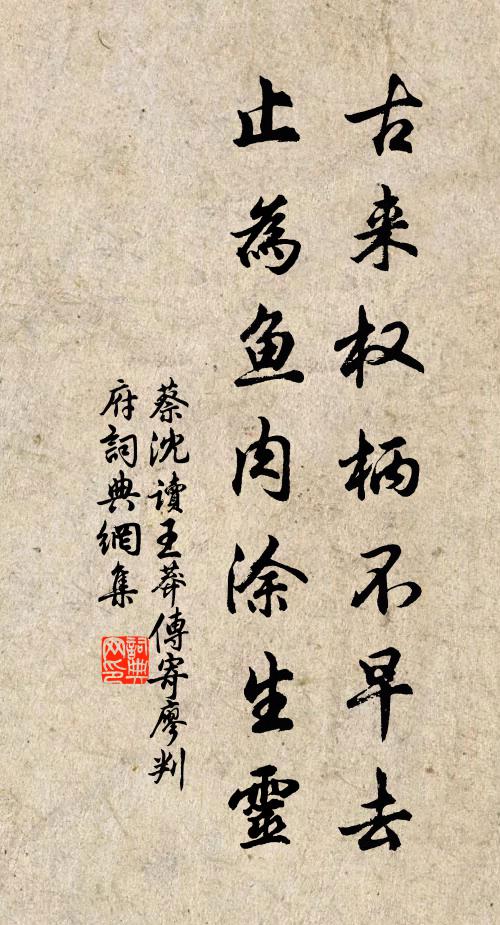 古来权柄不早去
止為鱼肉涂生靈
蔡沈讀王莽傳寄廖判
府詞典網集
詞典
网印